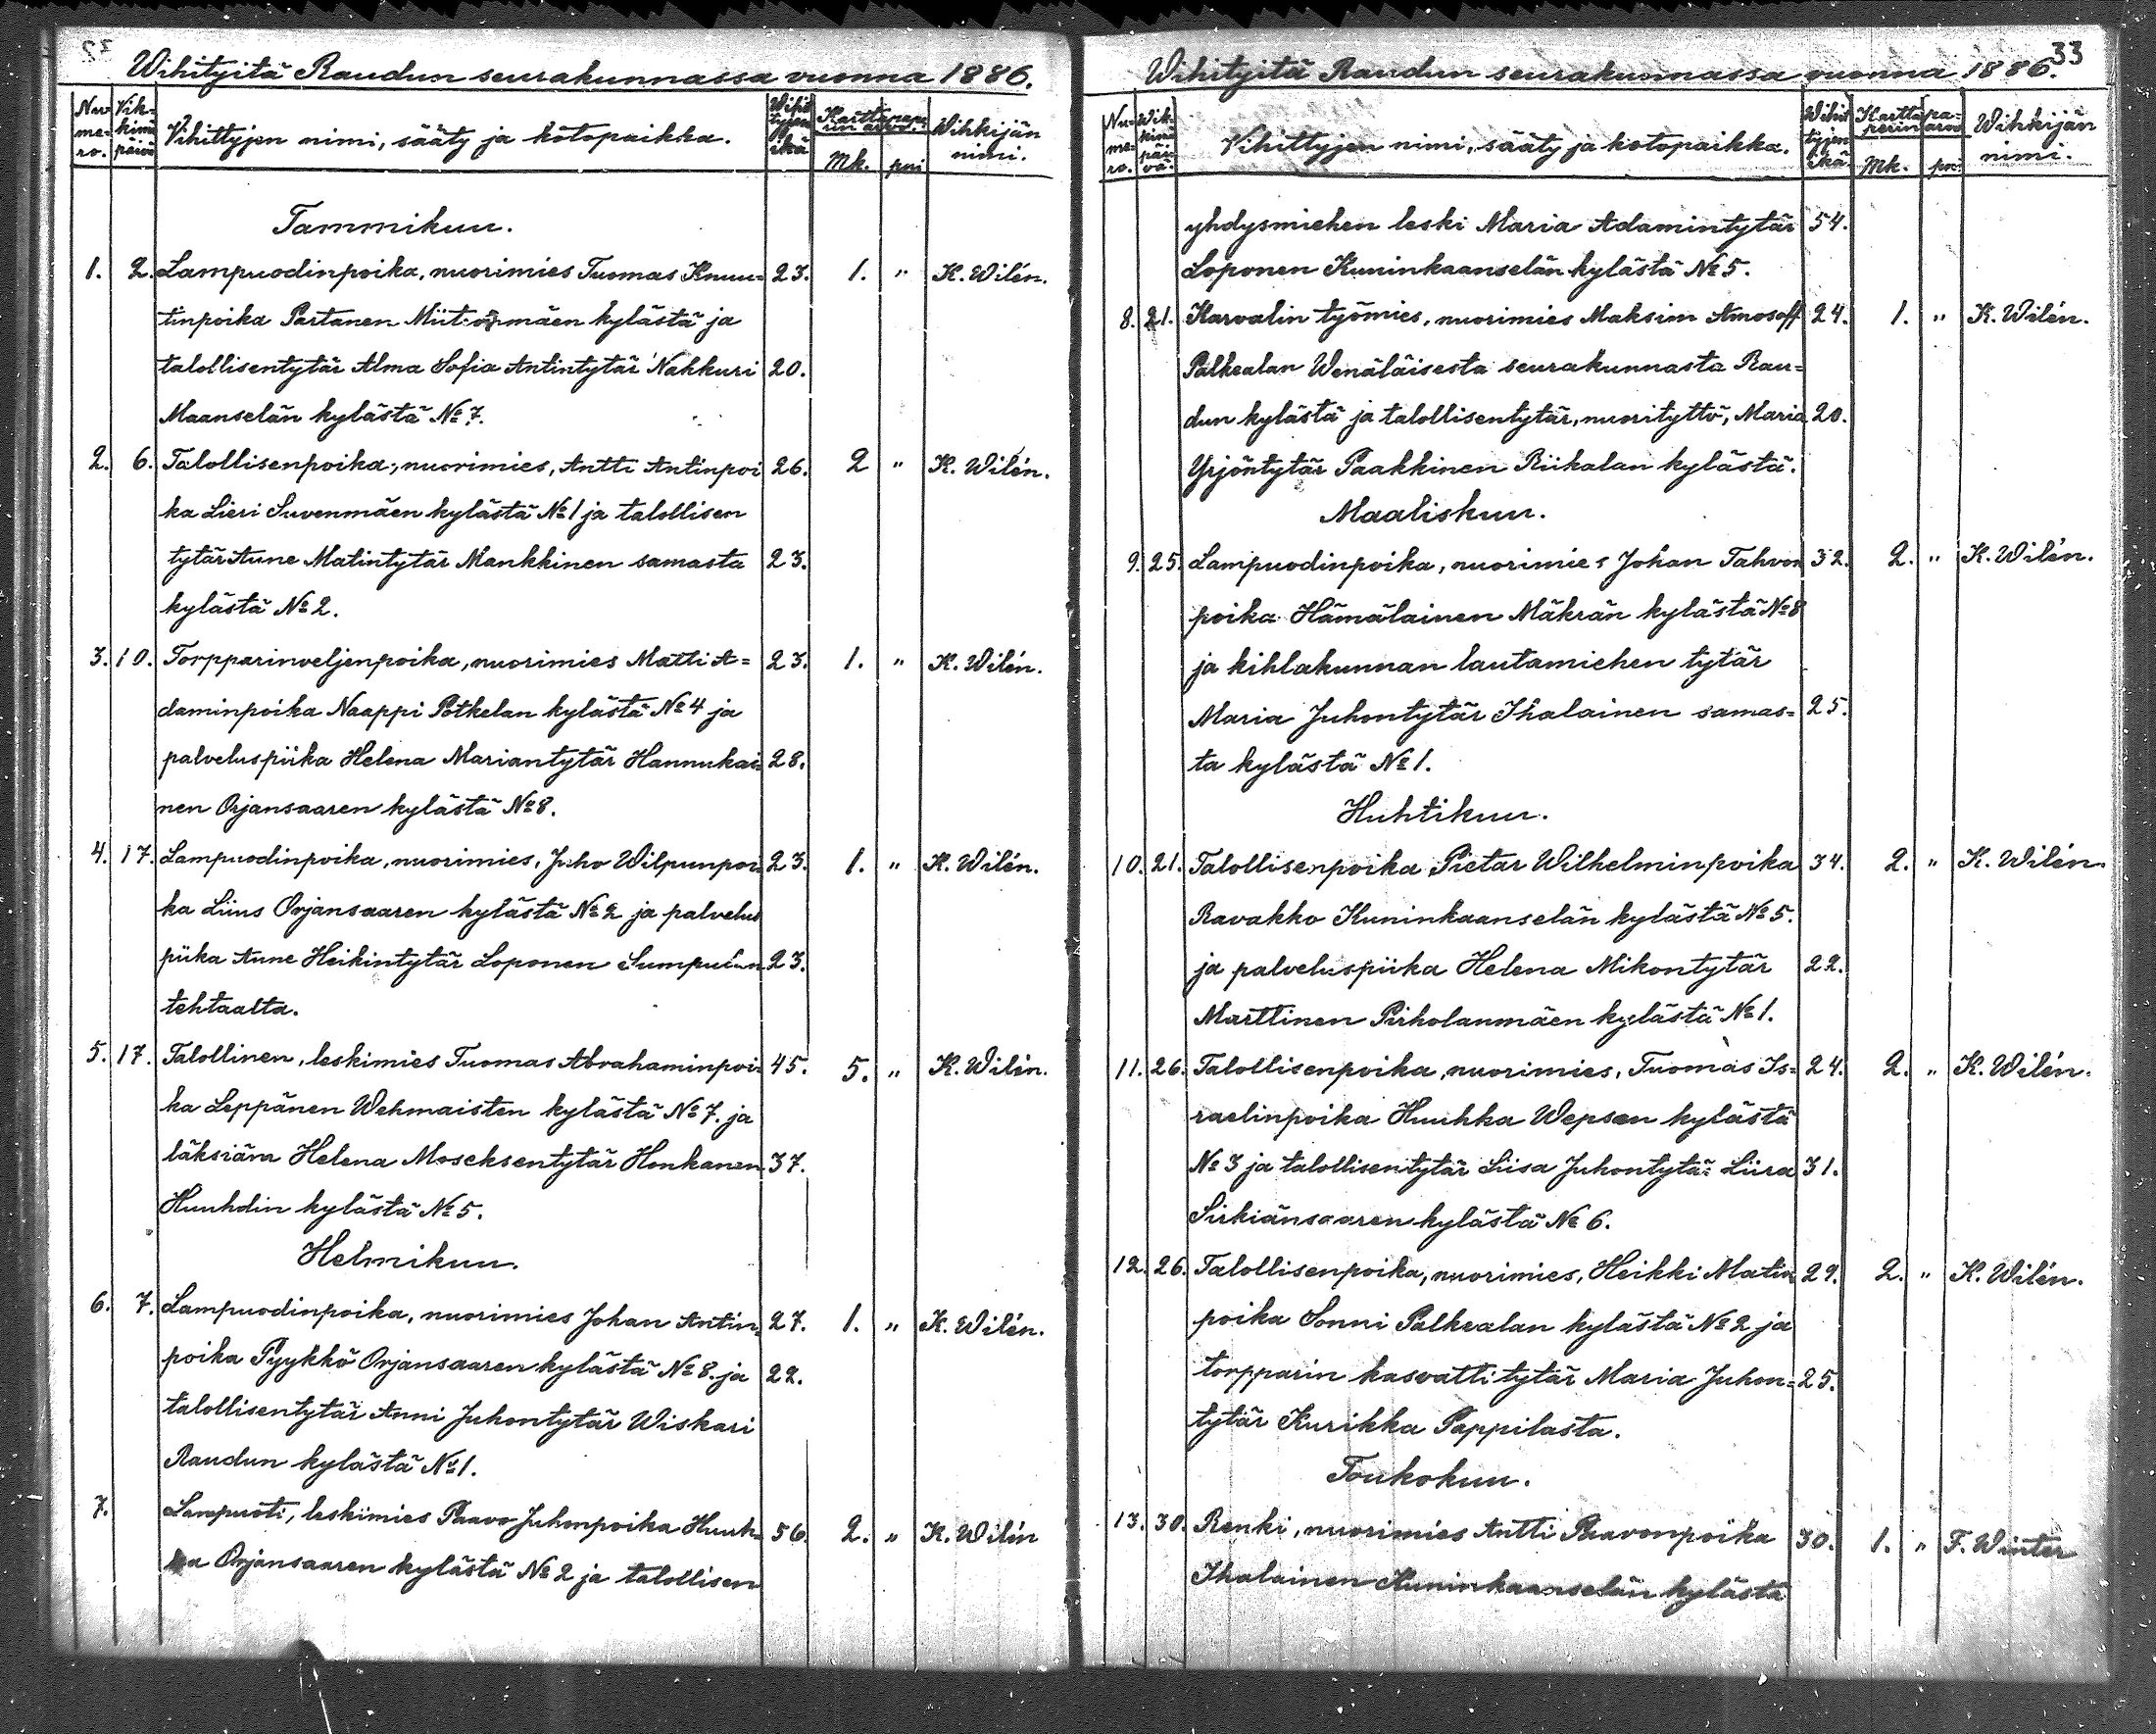 32
Wihityitä Raudun seurakunnassa vuonna 1886.
Nu=
me=
ro.
Vih=
kimä
päivä
Vihittyjen nimi, sääty ja kotopaikka.
Wihit
tyjen
ikä
Karttapape
rin arvo.
Mk. pni
Wihkijän
nimi.
Tammikuu.
1. 2. Lampuodinpoika, nuorimies Tuomas Knuu= 23. 1. " K. Wilén.
tinpoika Partanen mäen kylästä ja
talollisentytär Alma Sofia Antintytär Nahkuri 20.
Maanselän kylästä № 7.
2. 6. Talollisenpoika, nuorimies, Antti Antinpoi 26. 2 " K. Wilén.
ka Lieri Suvenmäen kylästä № 1 ja talollisen
tytär Aune Matintytär Mankkinen samasta 23.
kylästä № 2.
3. 10. Torpparinveljenpoika, nuorimies Matti A= 23. 1. " K. Wilén.
daminpoika Naappi Potkelan kylästä № 4 ja
palveluspiika Helena Mariantytär Hannukai= 28.
nen Orjansaaren kylästä № 8.
4. 17. Lampuodinpoika, nuorimies, Juho Wilpunpoi= 23. 1. " K. Wilén.
ka Liius Orjansaaren kylästä № 2 ja palvelus
piika Anne Heikintytär Loponen Sumpulan 23.
tehtaalta.
5. 17. Talollinen, leskimies Tuomas Abrahaminpoi= 45. 5. " K. Wilén.
ka Leppänen Wehmaisten kylästä № 7. ja
läksiäin Helena Moseksentytär Honkanen 37.
Huuhdin kylästä № 5.
Helmikuu.
6. 7. Lampuodinpoika, nuorimies Johan Antin= 27. 1. " K. Wilén.
poika Pyykkö Orjansaaren kylästä № 8. ja 22.
talollisentytär Anni Juhontytär Wiskari
Raudun kylästä № 1.
7. Lampuoti, leskimies Paavo Juhonpoika Huuh= 56. 2. " K. Wilén
ka Orjansaaren kylästä № 2 ja talollisen
33
Wihityitä Raudun seurakunnassa vuonna 1886.
Nu=
me=
ro.
Wih=
kimä
päi=
vä.
Vihittyjen nimi, sääty ja kotopaikka.
Wihit
tyjen
ikä.
Karttapa=
perin arvo
Mk. pni
Wihkijän
nimi.
yhdysmiehen leski Maria Adamintytär 54.
Loponen Kuninkaanselän kylästä № 5.
8. 21. Karvalin työmies, nuorimies Maksim Amosoff 24. 1. " K. Wilén.
Palkealan Wenäläisestä seurakunnasta Rau=
dun kylästä ja talollisentytär, nuorityttö, Maria 20.
Yrjöntytär Paakkinen Riikalan kylästä.
Maaliskuu.
9. 25. Lampuodinpoika, nuorimies Johan Tahvon 32. 2. " K. Wilén.
poika Hämäläinen Mäkrän kylästä № 8
ja kihlakunnan lautamiehen tytär
Maria Juhontytär Ihalainen samas= 25.
ta kylästä № 1.
Huhtikuu.
10. 21. Talollisenpoika Pietar Wilhelminpoika 34. 2. " K. Wilén.
Ravakko Kuninkaanselän kylästä № 5.
ja palveluspiika Helena Mikontytär 22.
Marttinen Pirholanmäen kylästä № 1.
11. 26. Talollisenpoika, nuorimies, Tuomas Is= 24. 2. " K. Wilén.
raelinpoika Huuhka Wepsen kylästä
№ 3 ja talollisentytär Liisa Juhontytär Liira 31.
Sirkiänsaaren kylästä № 6.
12. 26. Talollisenpoika, nuorimies, Heikki Matin 29. 2. " K. Wilén.
poika Sonni Palkealan kylästä № 2 ja
torpparin kasvattitytär Maria Juhon= 25.
tytär Kurikka Pappilasta.
Toukokuu.
13. 30. Renki, nuorimies Antti Paavonpoika 30. 1. " F. Winter
Ihalainen Kuninkaanselän kylästä